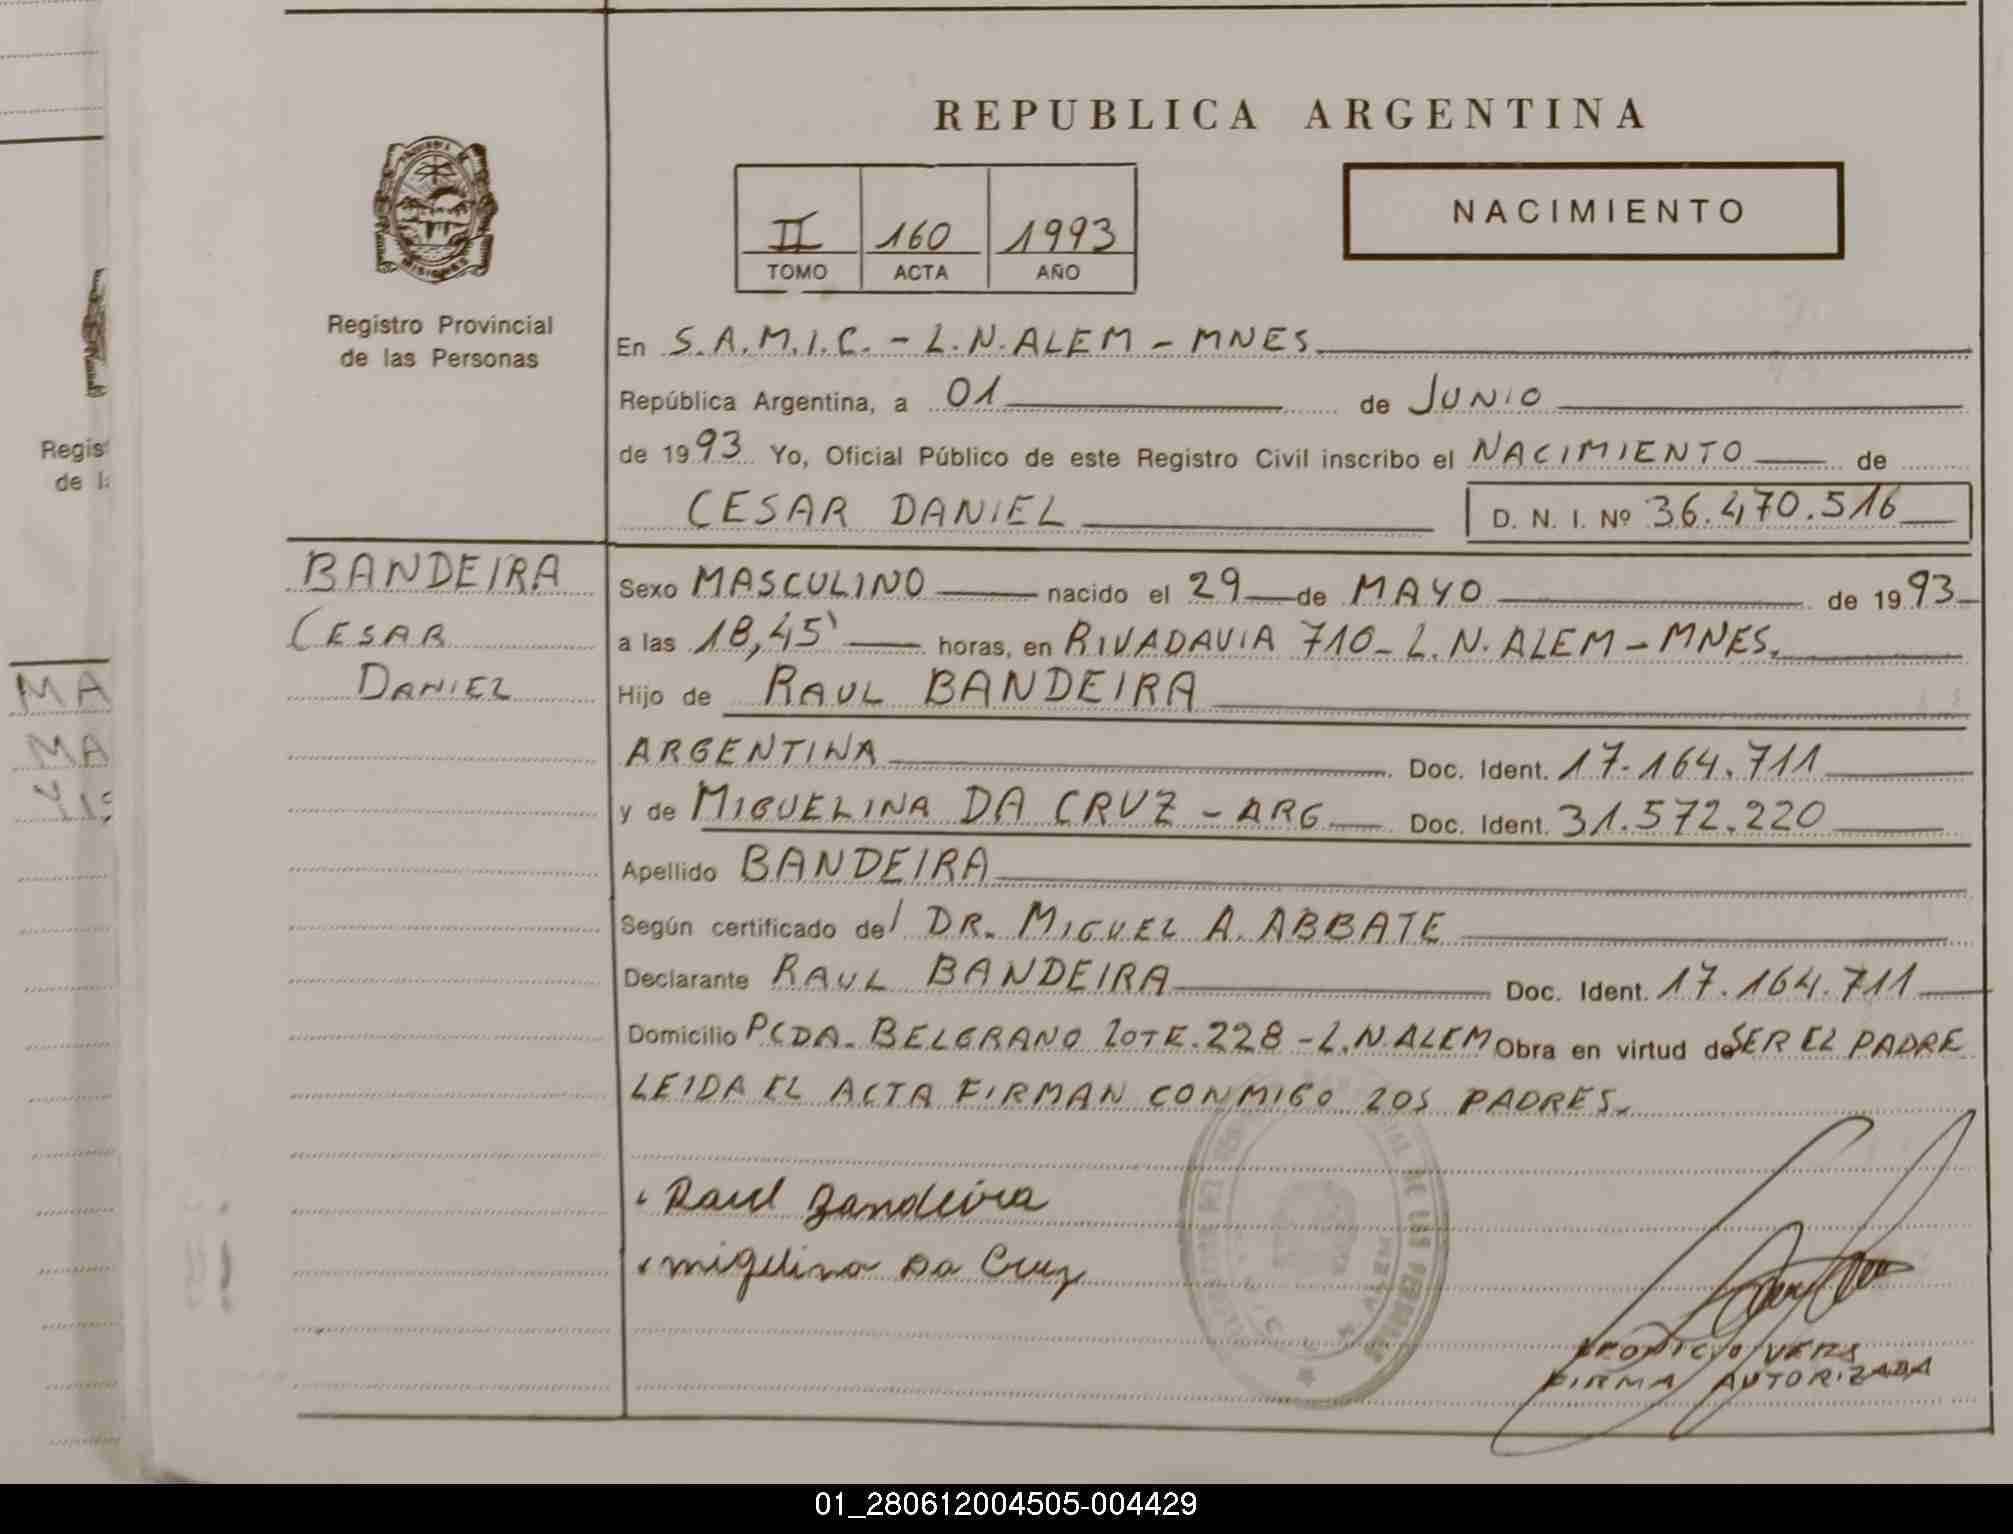 REPUBLICA ARGENTINA
NACIMIENTO
II 160 1993
TOMO ACTA AÑO
MISIONES
Registro Provincial
de las Personas
En S.A.M.I.C. - L.N. ALEM - MNES
República Argentina, a 01 de JUNIO
de 1993 Yo, Oficial Público de este Registro Civil inscribo el NACIMIENTO de
CESAR DANIEL D. N. I. Nº 36.470.516
BANDEIRA
CESAR
DANIEL
Sexo MASCULINO nacido el 29 de MAYO de 1993
a las 18,45' horas, en RIVADAVIA 710 - L.N. ALEM - MNES.
Hijo de RAUL BANDEIRA
ARGENTINA Doc. Ident. 17.164.711
y de MIGUELINA DA CRUZ - ARG Doc. Ident. 31.572.220
Apellido BANDEIRA
Según certificado del DR. MIGUEL A. ABBATE
Declarante RAUL BANDEIRA Doc. Ident. 17.164.711
Domicilio PCDA. BELGRANO LOTE.228 - L.N ALEM Obra en virtud de SER EL PADRE
LEIDA EL ACTA FIRMAN CONMIGO LOS PADRES.
Raul Bandeira
Migelina Da Cruz
FIRMA AUTORIZADA
Regis
de l
MA
MA
01_280612004505-004429